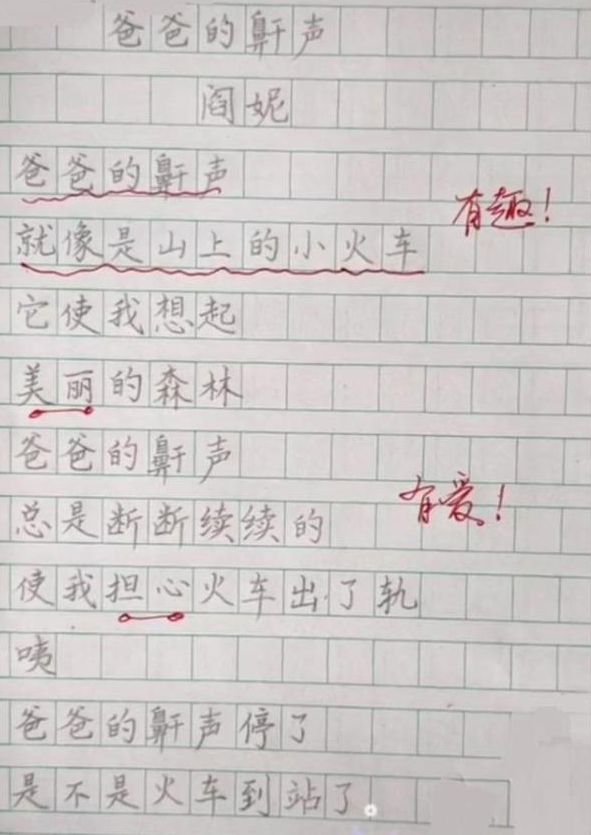 爸爸的鼾声
阎妮
爸爸的鼾声
就像是山上的小火车
有趣！
它使我想起
美丽的森林
爸爸的鼾声
总是断断续续的
有爱！
使我担心火车出了轨
咦
爸爸的鼾声停了
是不是火车到站了